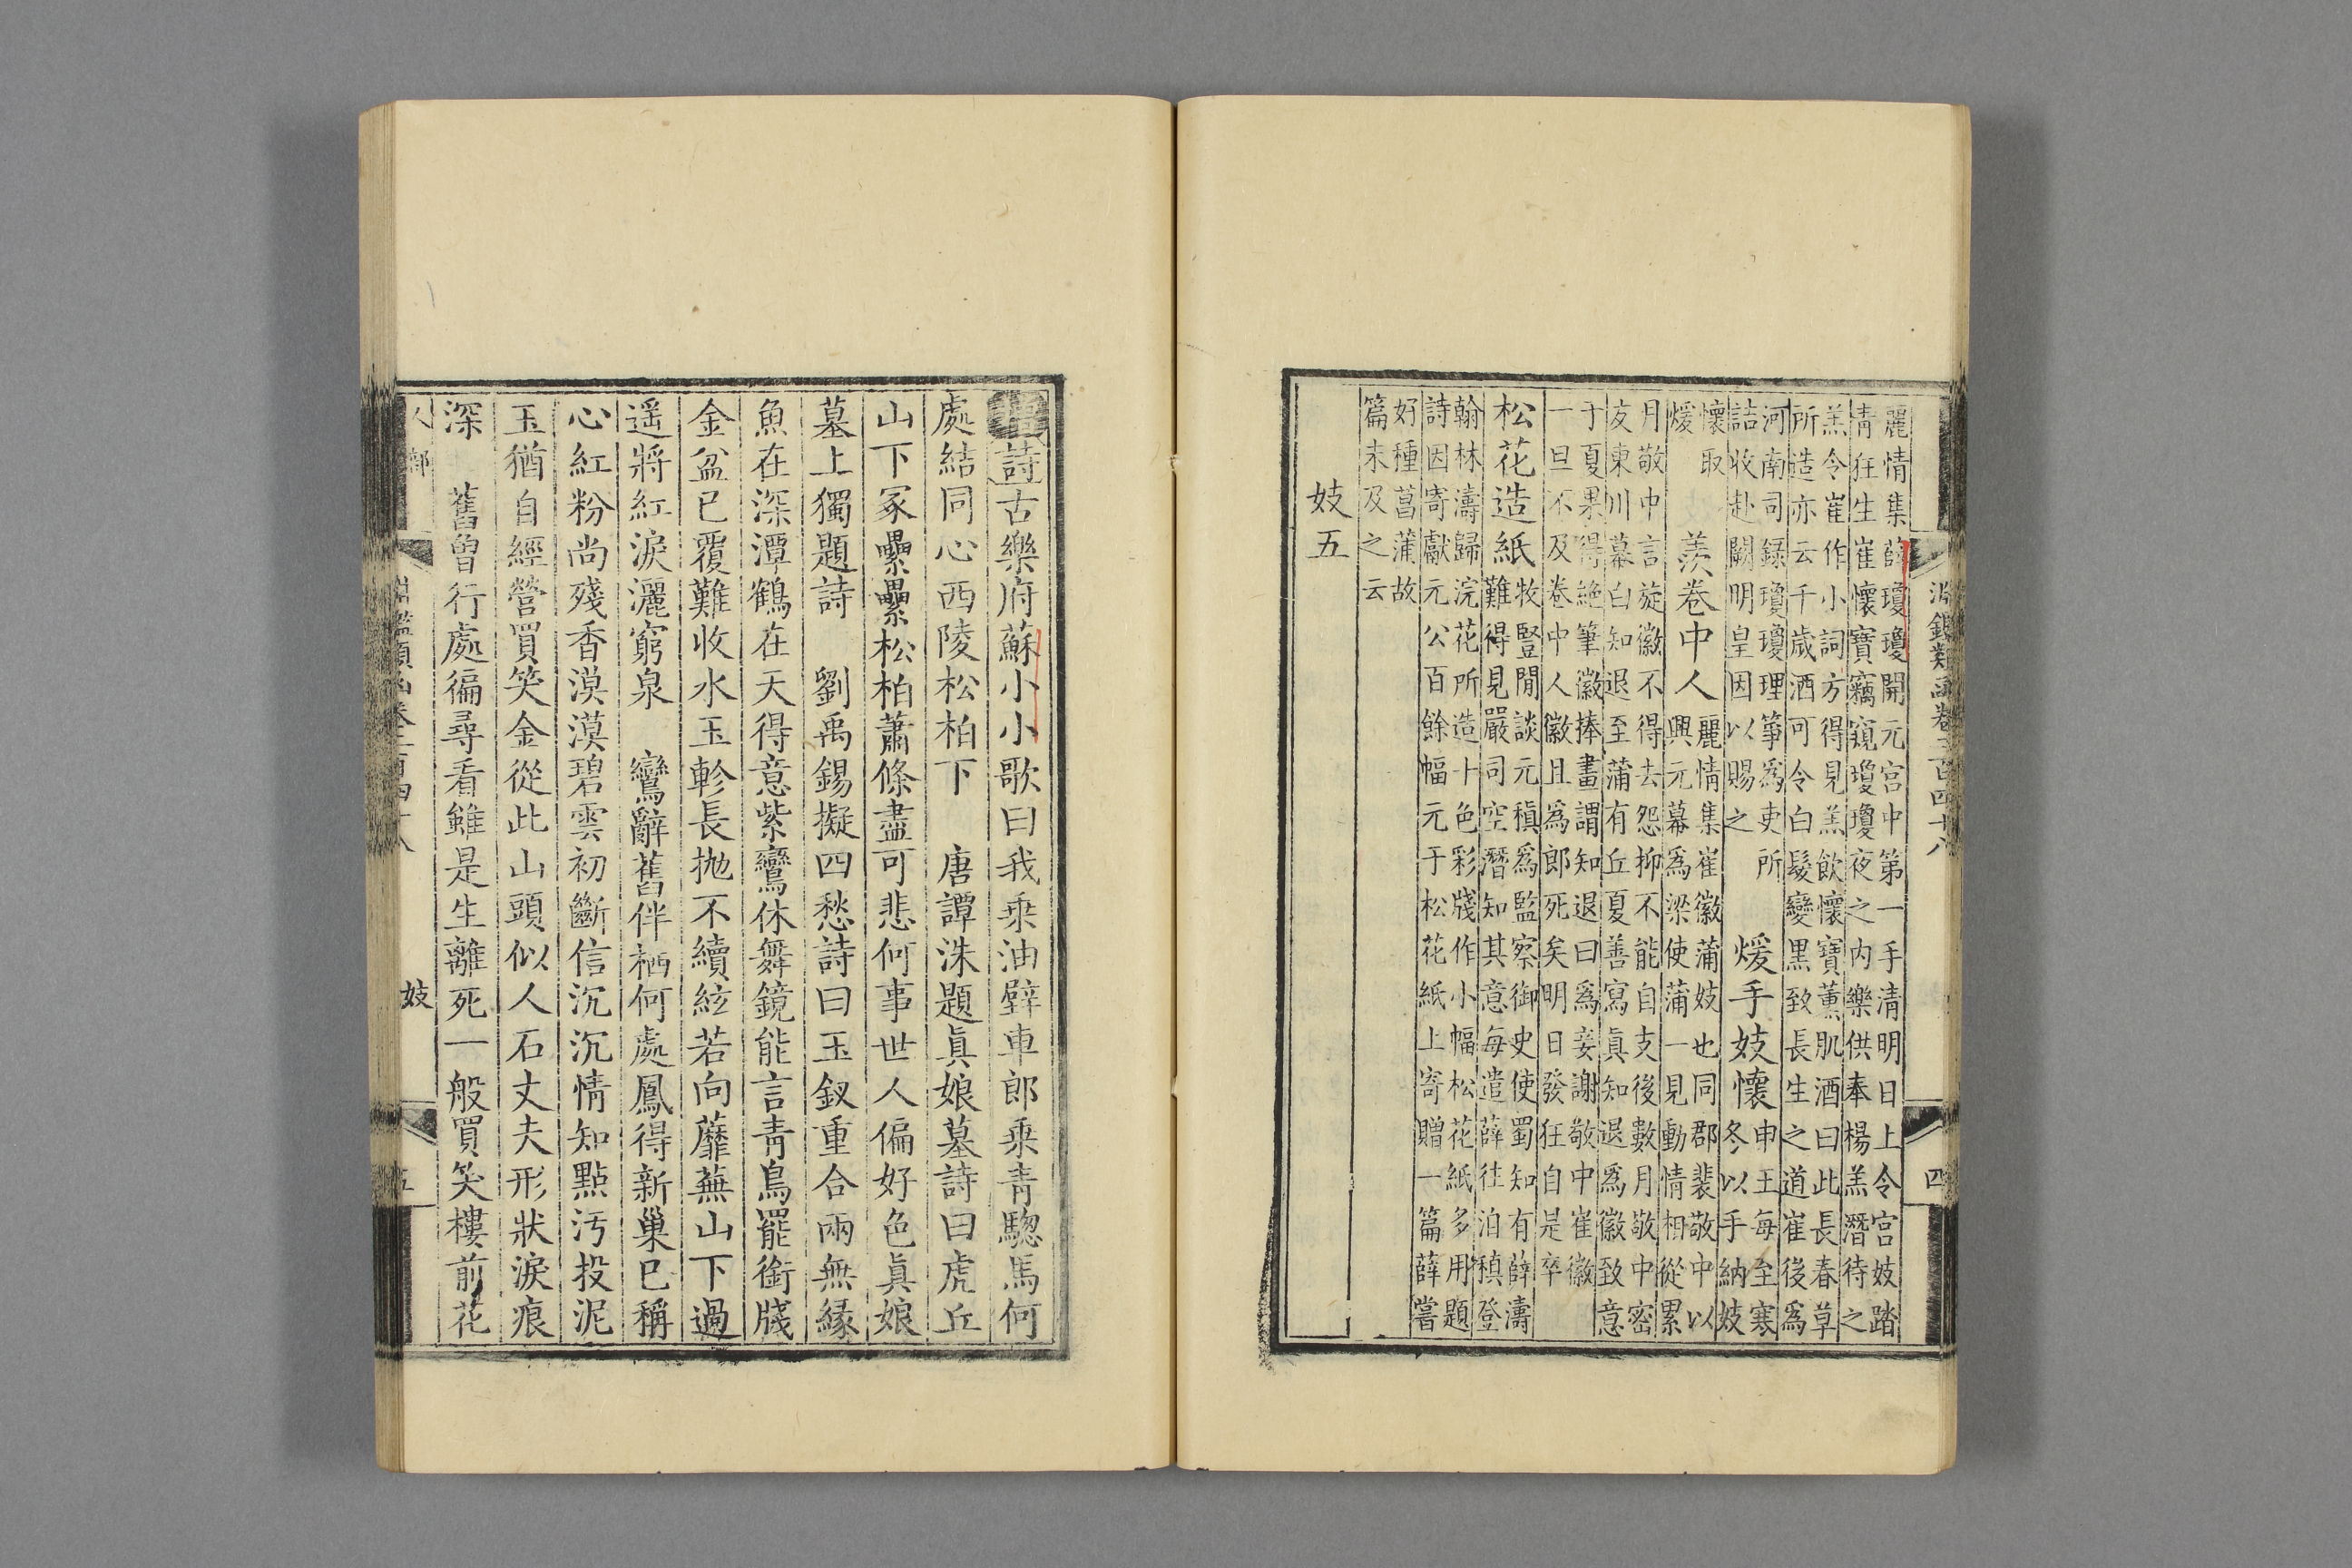 淵鑑類函卷二百四十八
四
麗情集薛瓊瓊開元宮中第一手清明日上令宮妓踏
青狂生崔懷寶竊窺瓊瓊夜之內樂供奉楊羔潛待之
羔令崔作小詞方得見羔飲懷寶薰肌酒曰此長春草
所造亦云千歲酒可令白髮變黑致長生之道崔後爲
河南司錄瓊瓊理箏爲吏所
詰收赴闕明皇因以賜之
煖手妓懷
申王每至寒
冬以手納妓
懷取
煖
羨卷中人
麗情集崔徽蒲妓也同郡裴敬中以
興元幕爲梁使蒲一見動情相從累
月敬中言旋徽不得去怨抑不能自支後數月敬中密
友東川幕白知退至蒲有丘夏善寫眞知退爲徽致意
于夏果得絶筆徽捧畫謂知退曰爲妾謝敬中崔徽
一旦不及卷中人徽且爲郎死矣明日發狂自是卒
松花造紙
牧豎閒談元稹爲監察御史使蜀知有薛濤
難得見嚴司空潛知其意每遣薛往泊稹登
翰林濤歸浣花所造十色彩牋作小幅松花紙多用題
詩因寄獻元公百餘幅元于松花紙上寄贈一篇薛嘗
好種菖蒲故
篇末及之云
妓五
詩古樂府蘇小小歌曰我乘油壁車郎乘青驄馬何
處結同心西陵松柏下　唐譚洙題眞娘墓詩曰虎丘
山下冢纍纍松柏蕭條盡可悲何事世人偏好色眞娘
墓上獨題詩　劉禹錫擬四愁詩曰玉釵重合兩無緣
魚在深潭鶴在天得意紫鸞休舞鏡能言青鳥罷銜牋
金盆已覆難收水玉軫長拋不續絃若向蘼蕪山下過
遥將紅淚灑窮泉　鸞辭舊伴栖何處鳳得新巢已稱
心紅粉尚殘香漠漠碧雲初斷信沉沉情知點汚投泥
玉猶自經營買笑金從此山頭似人石丈夫形狀淚痕
深　舊曾行處徧尋看雖是生離死一般買笑樓前花
人部
淵鑑類函卷二百四十八
妓
五